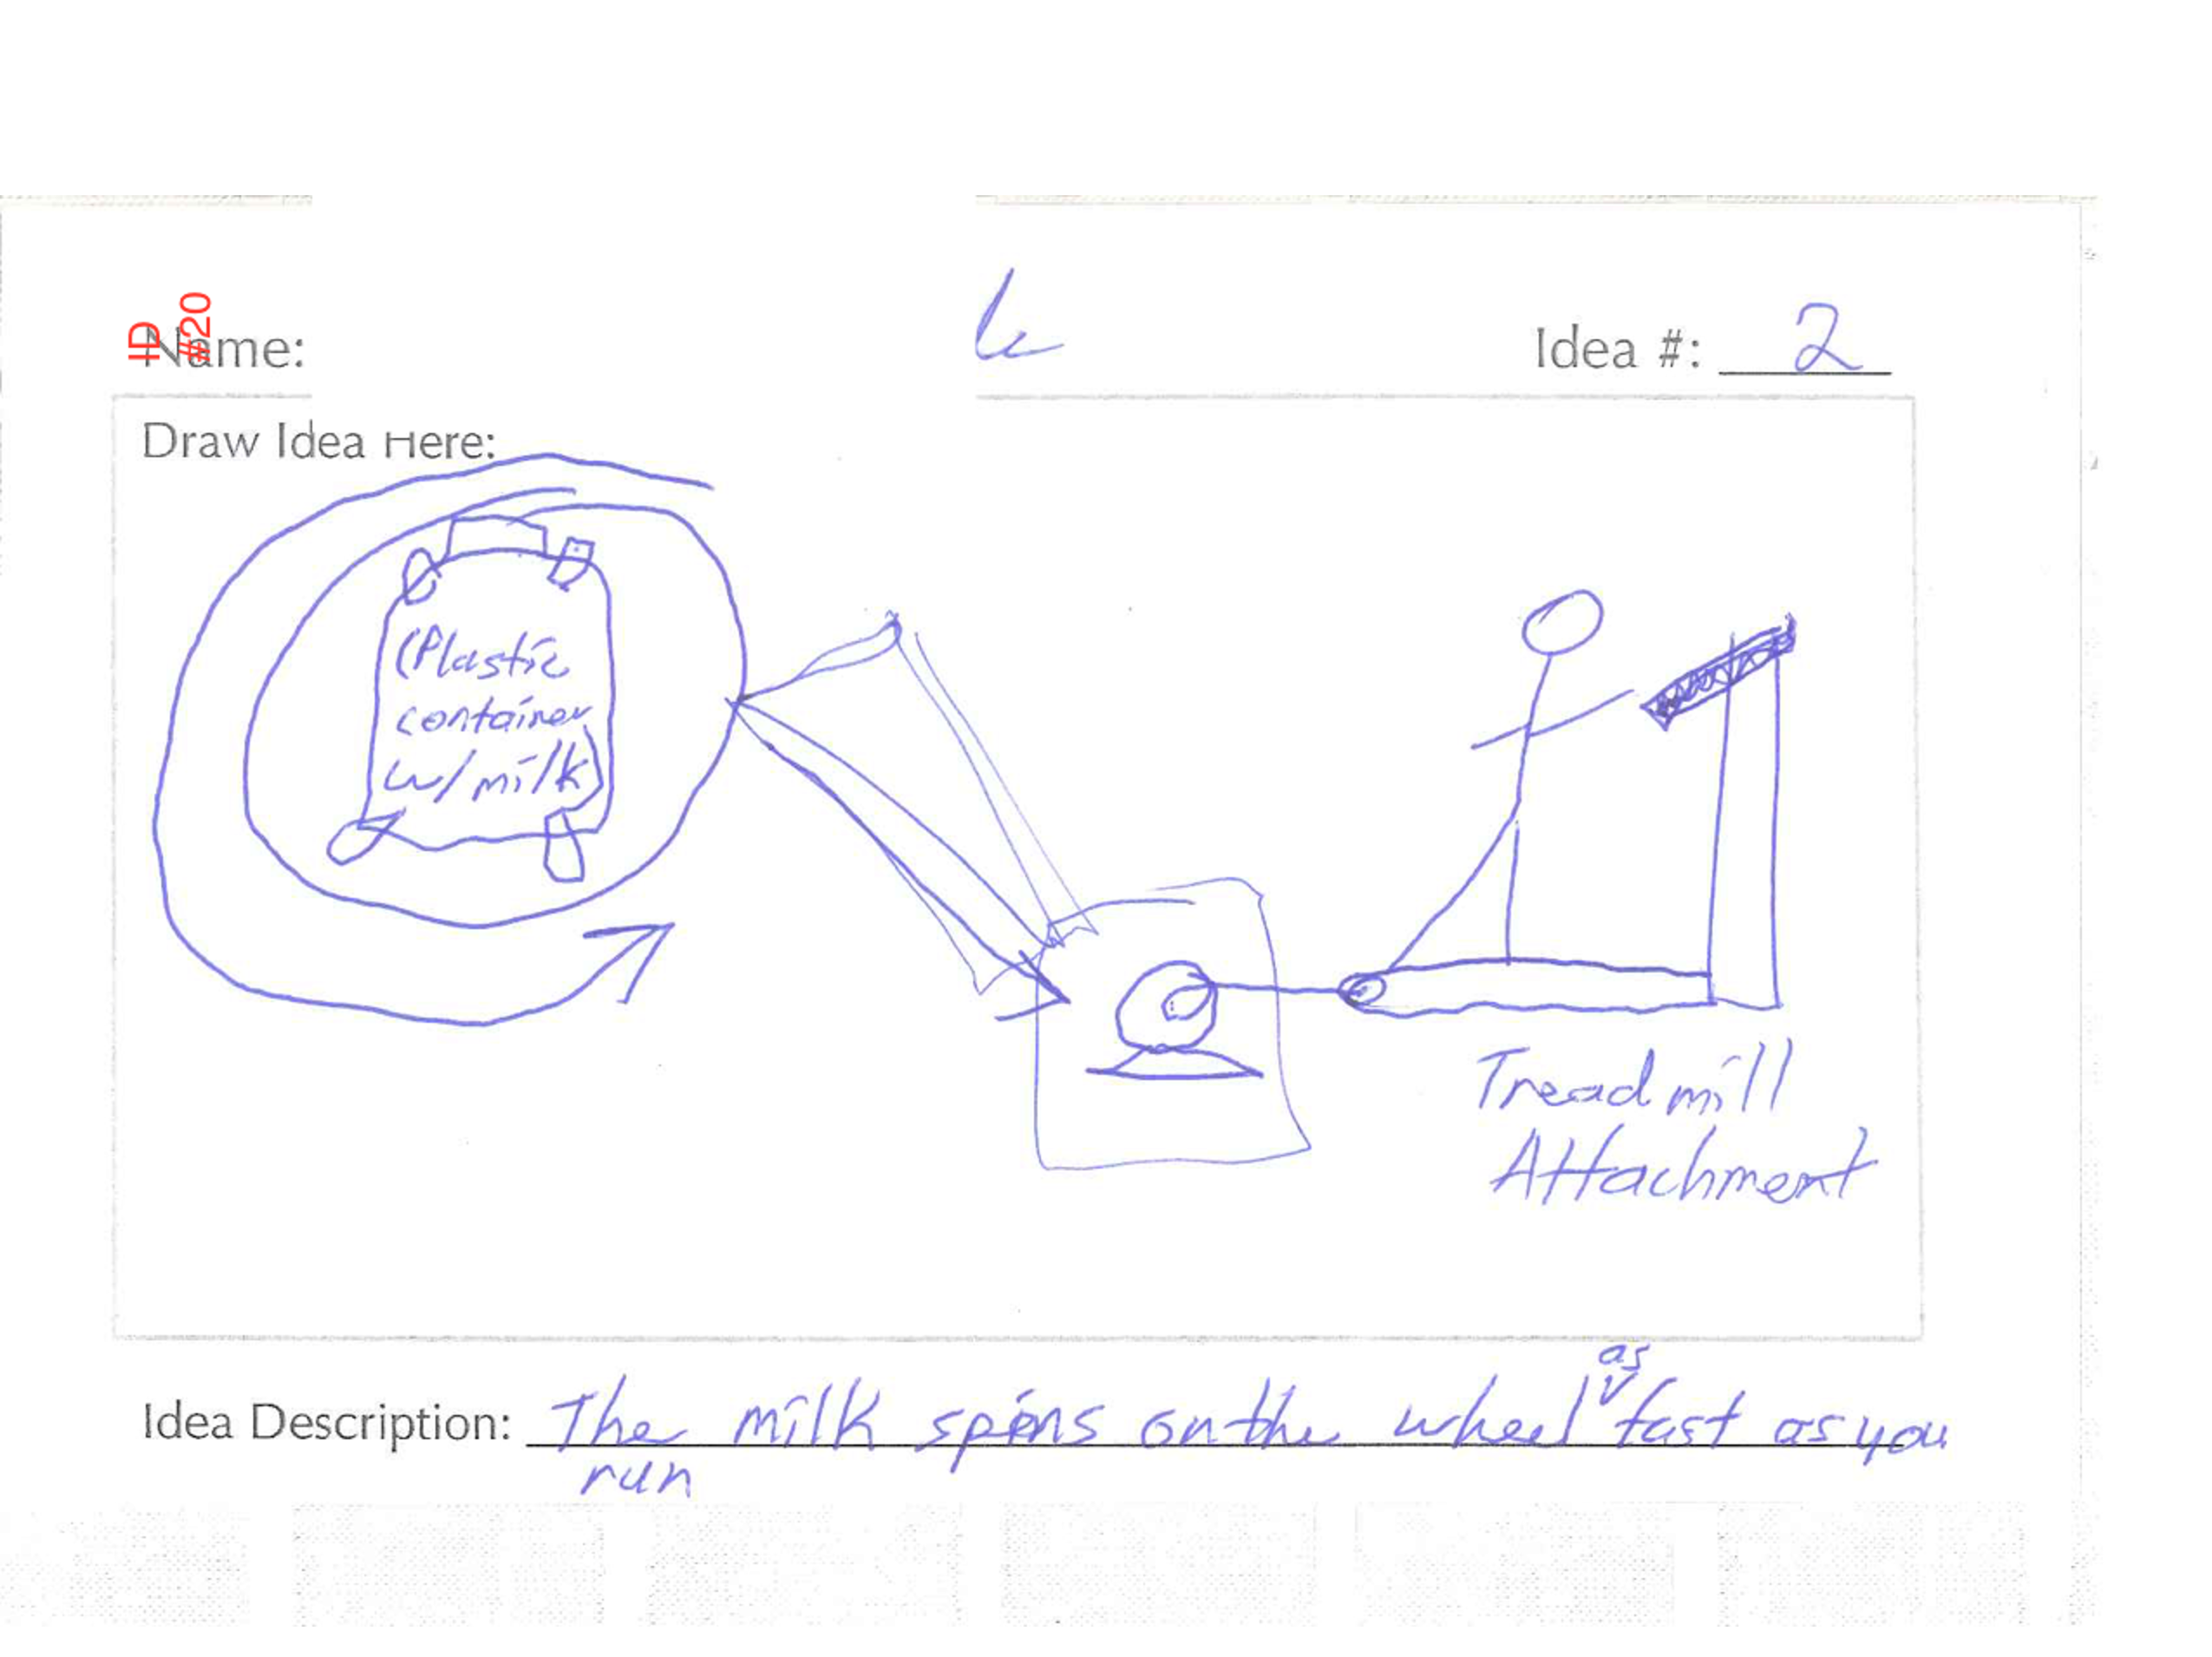 ID
#20
Name:
Idea #: 2
Draw Idea Here:
(Plastic
container
w/milk)
Treadmill
Attachment
as
Idea Description: The milk spins on the wheel fast as you
run